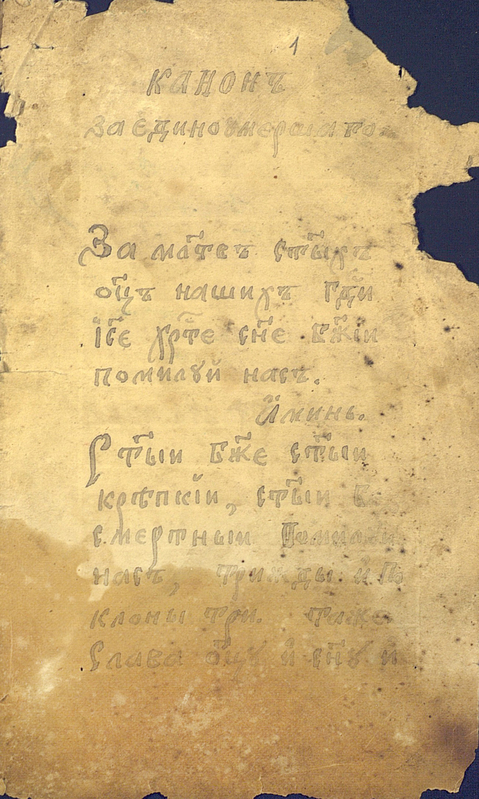 1
КАНОНЪ
За единоумершаго
За мл҃твъ ст҃ыхъ
оц҃ъ нашихъ гд҇и
І҆с҃е хр҇те сн҃е бж҃іи
помилуй насъ.
А҆минь.
Ст҃ыи бж҃е ст҃ыи
крѣпкіи, ст҃ыи бе
смертныи помилуи
насъ, трижды и по
клоны три. таже
Слава оц҃у и сн҃у и